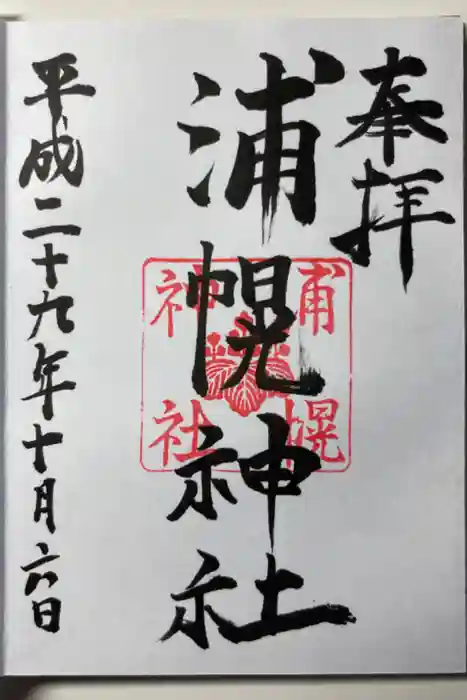 奉拝
浦幌神社
浦幌
神社
平成二十九年十月六日